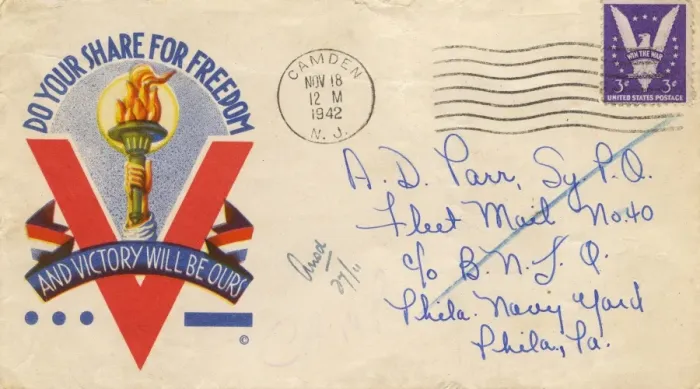 DO YOUR SHARE FOR FREEDOM
V
AND VICTORY WILL BE OURS
©
CAMDEN
NOV 18
12 M
1942
N. J.
WIN THE WAR
3¢ 3¢
UNITED STATES POSTAGE
A. D. Parr, Sy. P.O.
Fleet Mail No. 40
c/o B. N. L. O.
Phila. Navy Yard
Phila., Pa.
27/11